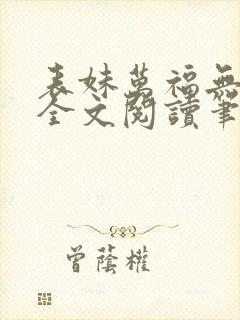 表妹萬福無
全文閱讀筆
曾蔭權